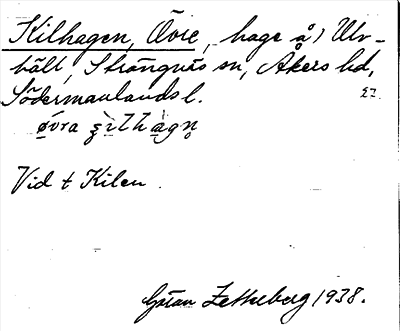 Kilhagen, Övre, hage å) Ulv-
häll, Strängnäs sn, Åkers hd,
Södermanlands l.
øvra
Vid † Kilen.
Göran Zetheberg 1938.